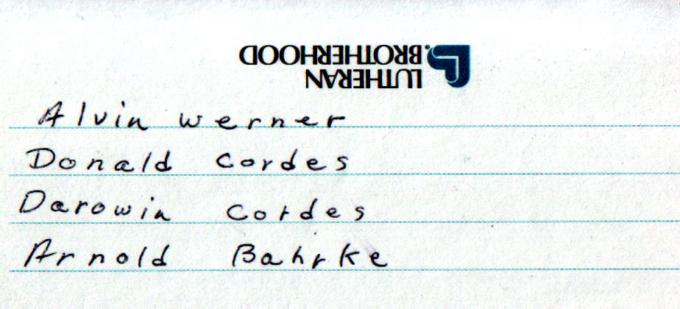 LUTHERAN
BROTHERHOOD
Alvin Werner
Donald Cordes
Darowin Cordes
Arnold Bahrke